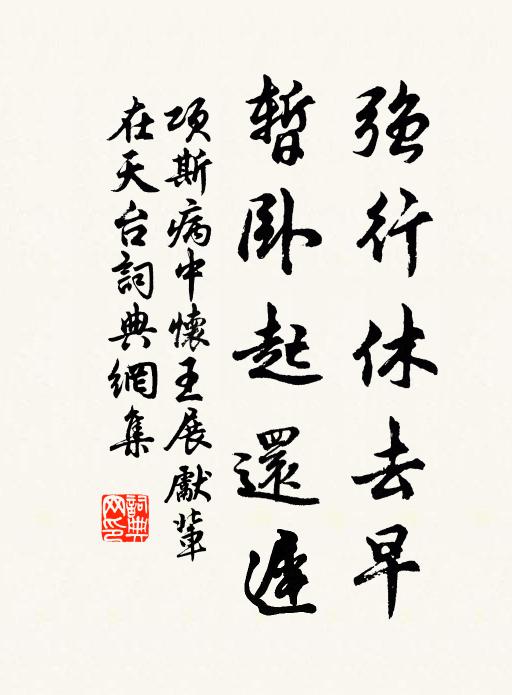 強行休去早
暫臥起還遲
項斯病中懷王展獻輩
在天台詞典網集
詞典
網印